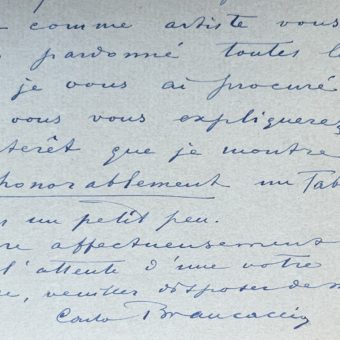 comme artiste vous
pardonné toutes l
je vous ai procuré
vous vous expliquerez
terêt que je montre
honorablement un Tab
un petit peu.
re affectueusement
l'attente d'une votre
e, veuillez disposer de m
Carlo Brancaccio